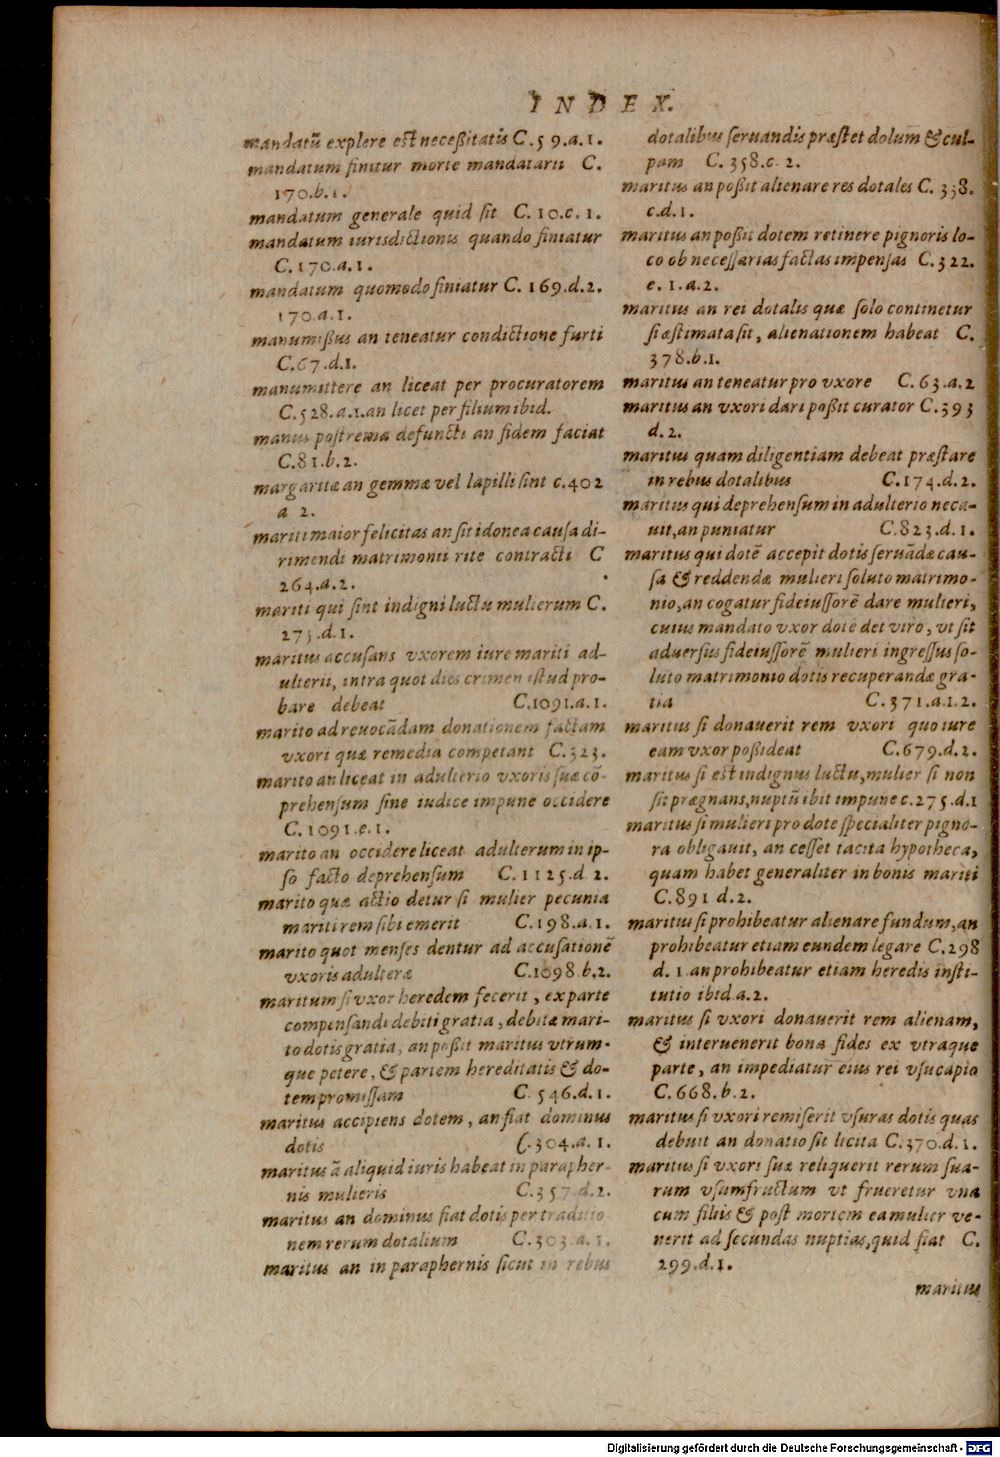 INDEX.
mandatũ explere est neceßitatis C.59.a.1.
mandatum finitur morte mandatarii C.
170.b.1.
mandatum generale quid sit C.10.c.1.
mandatum iurisdictionis quando finiatur
C.170.a.1.
mandatum quomodo finiatur C. 169.d.2.
170.a.1.
manumißus an teneatur condictione furti
C.67.d.1.
manumittere an liceat per procuratorem
C.528.a.1.an licet per filium ibid.
manus postrema defuncti an fidem faciat
C.81.b.2.
margaritæ an gemmæ vel lapilli sint c.402
a 2.
mariti maior felicitas an sit idonea causa di-
rimendi matrimonii rite contracti C
264.a.2.
mariti qui sint indigni luctu mulierum C.
275.d.1.
maritus accusans vxorem iure mariti ad-
ulterii, intra quot dies crimen istud pro-
bare debeat C.1091.a.1.
marito ad reuocãdam donationem factam
vxori quæ remedia competant C.323.
marito an liceat in adulterio vxoris suæ cõ-
prehensum sine iudice impune occidere
C.1091.e.1.
marito an occidere liceat adulterum in ip-
so facto deprehensum C.1125.d 2.
marito quæ actio detur si mulier pecunia
mariti rem sibi emerit C.198.a.1.
marito quot menses dentur ad accusationẽ
vxoris adulteræ C.1098.b.2.
maritum si vxor heredem fecerit, ex parte
compensandi debiti gratia, debitæ mari-
to dotis gratia, an poßit maritus vtrum-
que petere, & partem hereditatis & do-
tem promissam C. 546.d.1.
maritus accipiens dotem, an fiat dominus
dotis C.304.a.1.
maritus ã aliquid iuris habeat in parapher-
nis mulieris C.357.d.2.
maritus an dominus fiat dotis per traditio
nem rerum dotalium C.303.a.1.
maritus an in paraphernis sicut in rebus
dotalibus seruandis præstet dolum & cul-
pam C. 358.c.2.
maritus an poßit alienare res dotales C. 338.
c.d.1.
maritus an poßit dotem retinere pignoris lo-
co ob necessarias factas impensas C.322.
e.1.a.2.
maritus an rei dotalis quæ solo continetur
si æstimata sit, alienationem habeat C.
378.b.1.
maritus an teneatur pro vxore C.63.a.2
maritus an vxori dari poßit curator C.393
d.2.
maritus quam diligentiam debeat præstare
in rebus dotalibus C.174.d.2.
maritus qui deprehensum in adulterio neca-
uit, an puniatur C.823.d.1.
maritus qui dotẽ accepit dotis seruãdæ cau-
sa & reddendæ mulieri soluto matrimo-
nio, an cogatur fideiussorẽ dare mulieri,
cuius mandato vxor dotẽ det viro, vt sit
aduersus fideiussorẽ mulieri ingressus so-
luto matrimonio dotis recuperandæ gra-
tia C.371.a.1.2.
maritus si donauerit rem vxori quo iure
eam vxor poßideat C.679.d.2.
maritus si est indignus luctu, mulier si non
sit prægnans, nuptũ ibit impune c.275.d.1
maritus si mulieri pro dote specialiter pigno-
ra obligauit, an cesset tacita hypotheca,
quam habet generaliter in bonis mariti
C.891 d.2.
maritus si prohibeatur alienare fundum, an
prohibeatur etiam eundem legare C.298
d.1 an prohibeatur etiam heredis insti-
tutio ibid.a.2.
maritus si vxori donauerit rem alienam,
& interuenerit bona fides ex vtraque
parte, an impediatur eius rei vsucapio
C.668.b.2.
maritus si vxori remiserit vsuras dotis quas
debuit an donatio sit licita C.370.d.1.
maritus si vxori suæ reliquerit rerum sua-
rum vsumfructum vt frueretur vna
cum filiis & post mortem ea mulier ve-
nerit ad secundas nuptias, quid fiat C.
299.d.1.
maritus
Digitalisierung gefördert durch die Deutsche Forschungsgemeinschaft - DFG